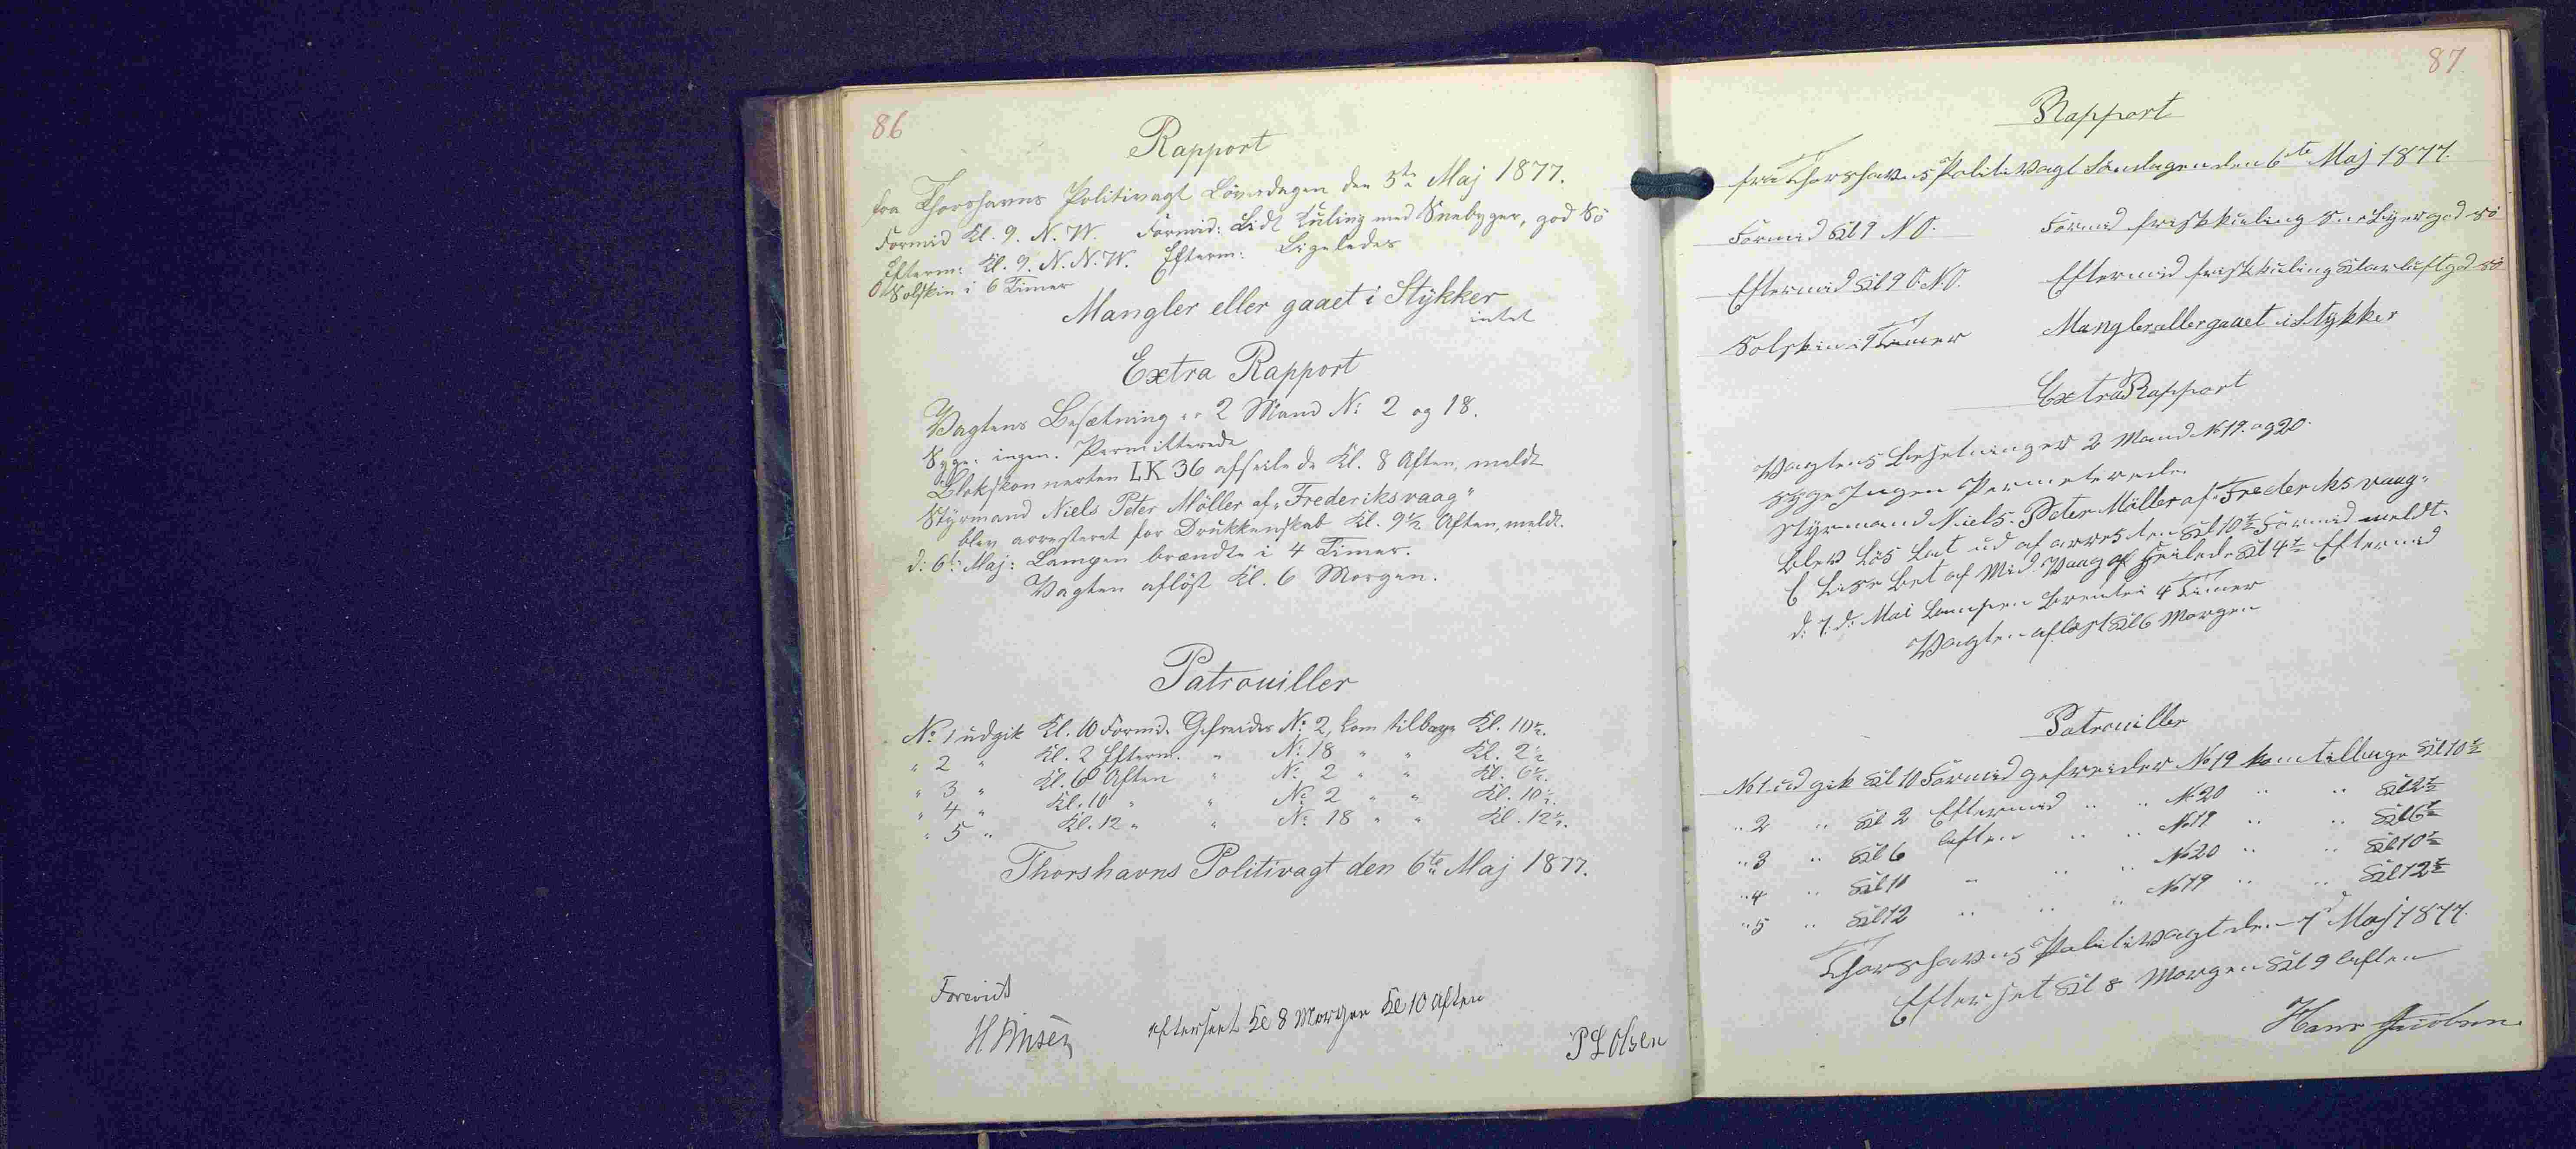 86
Rapport
fra Thorshavns Politivagt Löverdagen den 5te Maj 1877.
Formid Kl. 9. N. W. Formid: Lidt Kuling med Sneebyger, god Sö
Efterm: Kl. 9. N. N. W. Efterm: Ligeledes
Solskin i 6 Timer
Mangler eller gaaet i Stykker
intet
Extra Rapport
Vagtens Besætning er 2 Mand No 2 og 18.
Syge: ingen. Permitterede
Slobskonnerten LK 36 afseilede Kl. 8 Aften, meldt
Styrmand Niels Peter Möller af "Frederiksvaag"
blev arresteret for Drukkenskab Kl. 9½ Aften, meldt.
d: 6te Maj: Lampen brændte i 4 Timer.
Vagten aflöst Kl. 6 Morgen.
Patrouiller
No 1 udgik Kl. 10 Formid. Gefreider No 2, kom tilbage Kl. 10½.
" 2 " Kl. 2 Efterm. " No 18 " " Kl. 2½
" 3 " Kl. 6 Aften " No 2 " " Kl. 6½.
" 4 " Kl. 10 " " No 2 " " Kl. 10½.
" 5 " Kl. 12 " " No 18 " " Kl. 12½.
Thorshavns Politivagt den 6te Maj 1877.
Forevist
efterseet Kl 8 Morgen Kl 10 Aften
P L Olsen
87
Rapport
fra Thorshavns Politivagt Söndagen den 6te Maj 1877.
Formid Kl 9 N O. Formid frisk kuling Sneebyger god sö
Eftermid Kl 9 O. N. O. Eftermid frisk kuling klar luft god sö
Solskin i 9 Timer Mangler eller gaaet i Stykker
Extra Rapport
Vagtens Besetning er 2 Mand No 19. og 20.
Syge Ingen Permeterede
Styrmand Niels. Peter Möller af "Frederiksvaag"
blev lös lat ud af arresten Kl 10½ Formid meldt.
af Mid: Vaag af Seilede Kl 4½ Eftermid
d: 7. d: Mai Lampen brente i 4 Timer
Vagten aflöst Kl 6 Morgen
Patrouiller
No 1 ud gik Kl 10 Formid gefreider No 19 kom tilbage Kl 10½
" 2 " Kl 2 Eftermid " " No 20 " " Kl 2½
" 3 " Kl 6 Aften " " No 19 " " Kl 6½
" 4 " Kl 10 " " " No 20 " " Kl 10½
" 5 " Kl 12 " " " No 19 " " Kl 12½
Thorshavns Politivagt den 7d Maj 1877.
Efterset Kl 8 Morgen Kl 9 Aften
Hans Jacobsen